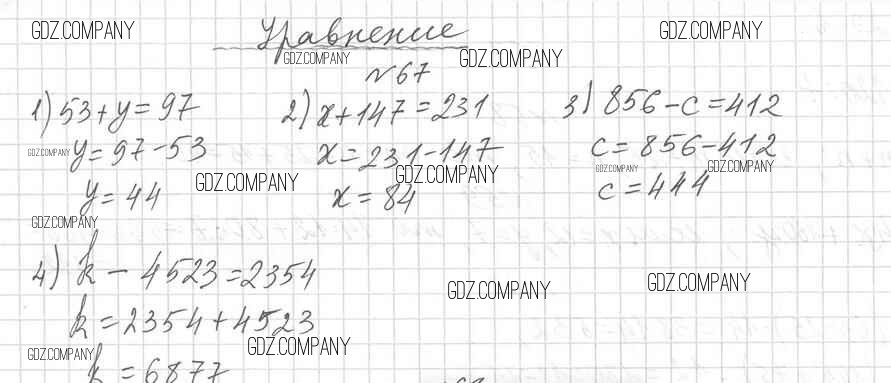 GDZ.COMPANY GDZ.COMPANY
Уравнение
GDZ.COMPANY GDZ.COMPANY
№67
1) 53+y=97 2) x+147=231 3) 856-c=412
GDZ.COMPANY y=97-53 x=231-147 c=856-412
GDZ.COMPANY GDZ.COMPANY GDZ.COMPANY GDZ.COMPANY
y=44 x=84 c=444
GDZ.COMPANY
4) k-4523=2354
GDZ.COMPANY GDZ.COMPANY
k=2354+4523
GDZ.COMPANY GDZ.COMPANY
k=6877